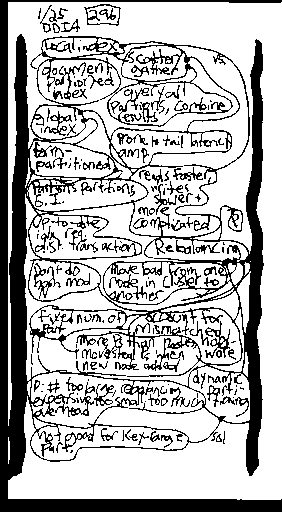 1/25 296
DDIA
Local index
document
partitioned
index
scatter/
gather
vs
give y/all
partitions, combine
results
global
index
Prone to tail latency
amp
term-
partitioned
reads faster,
writes
slower +
more
complicated
partitions
S.I.
up-to-date
dist. transaction
Rebalancing
Don't do
hash mod
Move load from one
node in cluster to
another
Fixed num. of
part
account for
mismatched
hardware
more
than nodes
move steal is when
new node added
P: # too large, rebalancing
expensive, too small, too much
overhead
dynamic
part.
not good for key-range
part.
sol